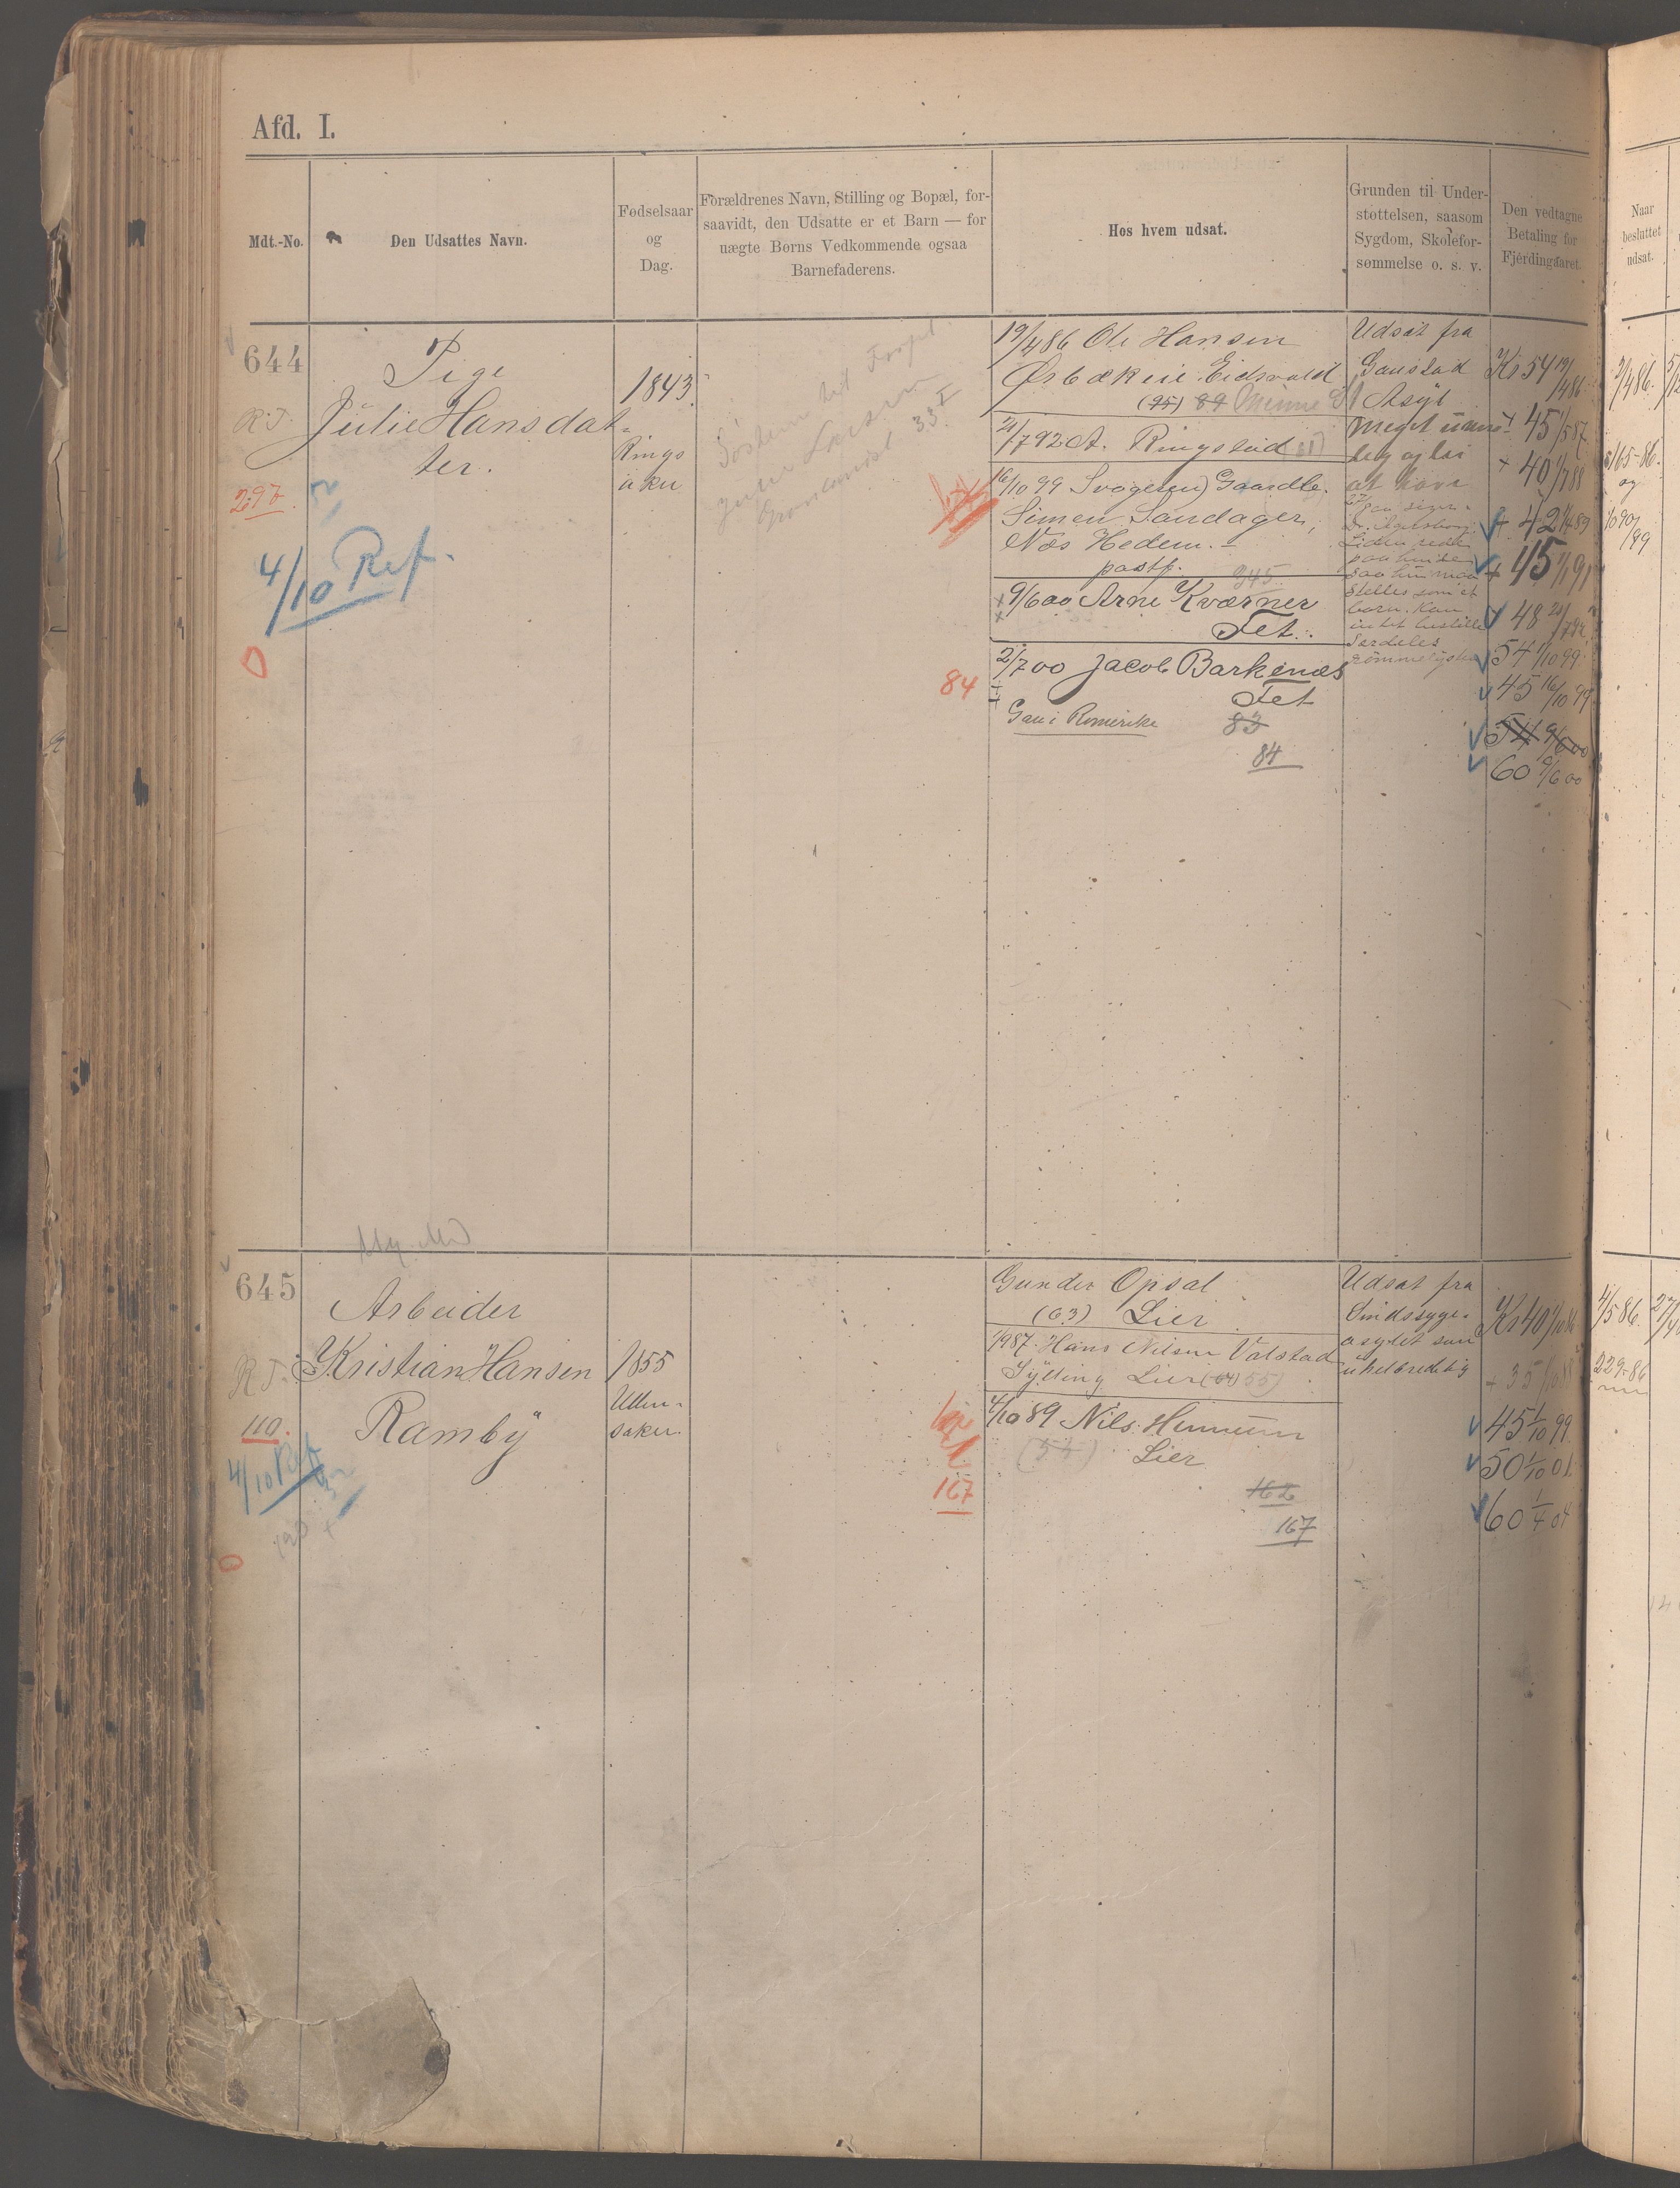 Afd. I.
Mdt.-No.
Den Udsattes Navn.
Fødselsaar
og
Dag.
Forældrenes Navn, Stilling og Bopæl, for-
saavidt, den Udsatte er et Barn — for
uægte Børns Vedkommende ogsaa
Barnefaderens.
Hos hvem udsat.
Grunden til Under-
støttelsen, saasom
Sygdom, Skolefor-
sømmelse o. s. v.
Den vedtagne
Betaling for
Fjerdingaaret.
Naar
besluttet
udsat.
644
R.T.
297.
4/10 Ref.
0
Pige
Julie Hansdat-
ter.
1843.
Rings
aker
Søsteren
33 I
19/4 86 Ole Hansen
Ørbækeie Eidsvold
(95) 89 Minne
21/7 92 A. Ringstad (81)
16/10 99 Svogeren) Gaardbr.
Simen Sandager,
Næs Hedem. -
postp.
945
9/6 00 Arne Kværner
Fet.
2/7 00 Jacob Barkenæs
Fet
Gaui Romerike
83
84
84
Udsat fra
Gaustad
Asyl
meget
at have
paa hende
saa hun maa
stelles som et
barn. Kan
intet bestille
Særdeles
rømmesyk
Kr 54 19/4 86
+ 45 1/5 87
+ 40 1/7 88
+ 42 1/4 89
+ 45 1/1 91
48 21/7 92
54 1/10 99
45 16/10 99
54 9/6 00
60 9/6 00
7/4 86.
165-86.
og
1090/99
645
R.T.
110.
4/10 Ref
0
Arbeider
Kristian Hansen
Ramby
1855
Ullen-
saker.
Gunder Opsal
(63) Lier
1/9 87 Hans Nilsen Valstad
Sylling Lier (64) 55)
4/10 89 Nils Hennum
(54) Lier
162
167
167
Udsat fra
Sindssyge-
asylet som
uhelbredelig
Kr 40 1/10 86
- 35 1/10 88
45 1/10 99.
50 1/10 01.
60 1/4 04
4/5 86.
229-86